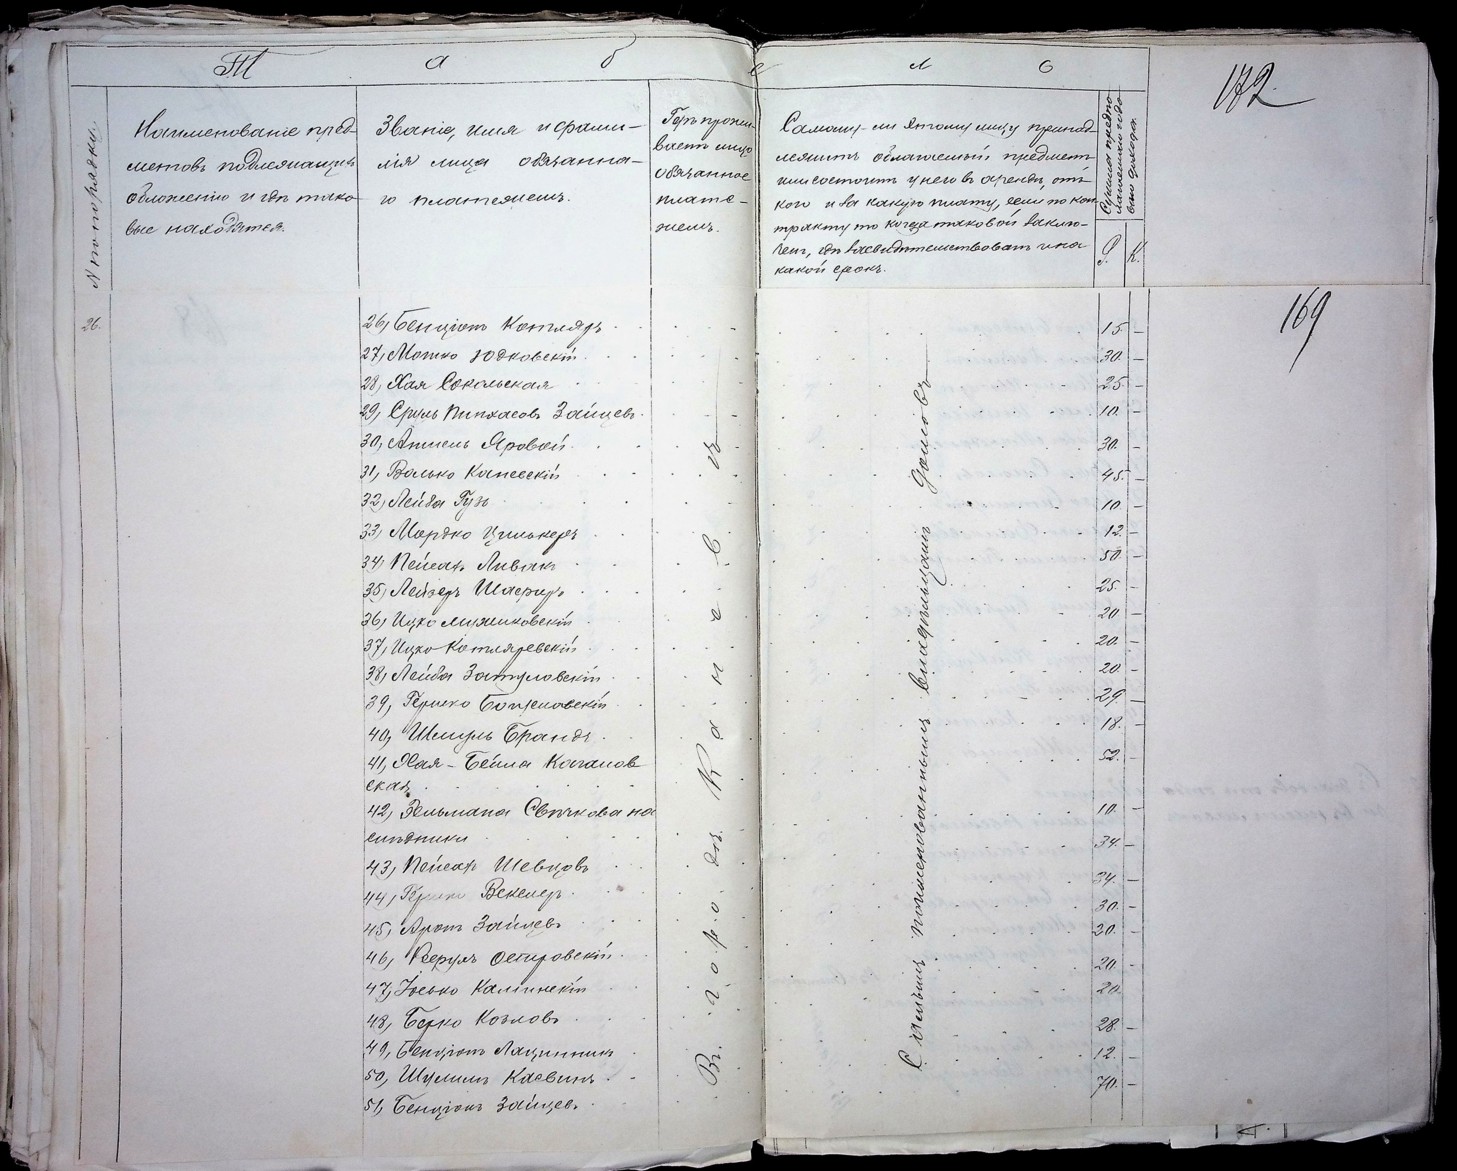 Табело
172
№ по порядку
Наименованіе пред-
метовъ подлежащихъ
обложенію и гдѣ тако-
вые находятся.
Званіе, имя и фами-
лія лица обязанна-
го платежемъ.
Гдѣ прожи-
ваетъ лицо
обязанное
плате-
жемъ.
Самому-ли этому лицу принад-
лежитъ облагаемый предметъ
или состоитъ у него въ арендѣ, отъ
кого и за какую плату, если по кон-
тракту то когда таковой заклю-
ченъ, гдѣ засвидѣтельствованъ и на
какой срокъ.
Сумма предпо-
лагаемаго годо-
ваго дохода.
Р. К.
169
26.
26, Бенціонъ Котляръ 15 -
27, Мошко Юдковскій 30 -
28, Хая Сокольская 25 -
29, Сруль Пинхасовъ Зайцевъ 10 -
30, Аншель Яровой 30 -
31, Волько Каневскій 45 -
32, Лейба Гузъ 10 -
33, Мордко Цилькеръ 12 -
34, Пейсахъ Ливакъ 50 -
35, Лейзеръ Шафиръ 25 -
36, Ицко Лижиковскій 20 -
37, Ицко Котляревскій 20 -
38, Лейба Затуловскій 20 -
39, Гершко Боужловскій 29 -
40, Шмуль Брандъ 18 -
41, Хая-Бейла Каганов
ская 52 -
42, Зельмана Свѣчкова на
слѣдники 10 -
43, Пейсахъ Шевцовъ 34 -
44, Гершко Векслеръ 34 -
45, Аронъ Зайцевъ 30 -
46, Берулъ Островскій 20 -
47, Іосько Калинскій 20 -
48, Берко Козловъ 20
49, Бенціонъ Лацинникъ 28 -
50, Шулимъ Каевинъ 12 -
51, Бенціонъ Зайцевъ 70 -
Въ городѣ Каневѣ
Самымъ поименованнымъ владѣльцамъ домовъ